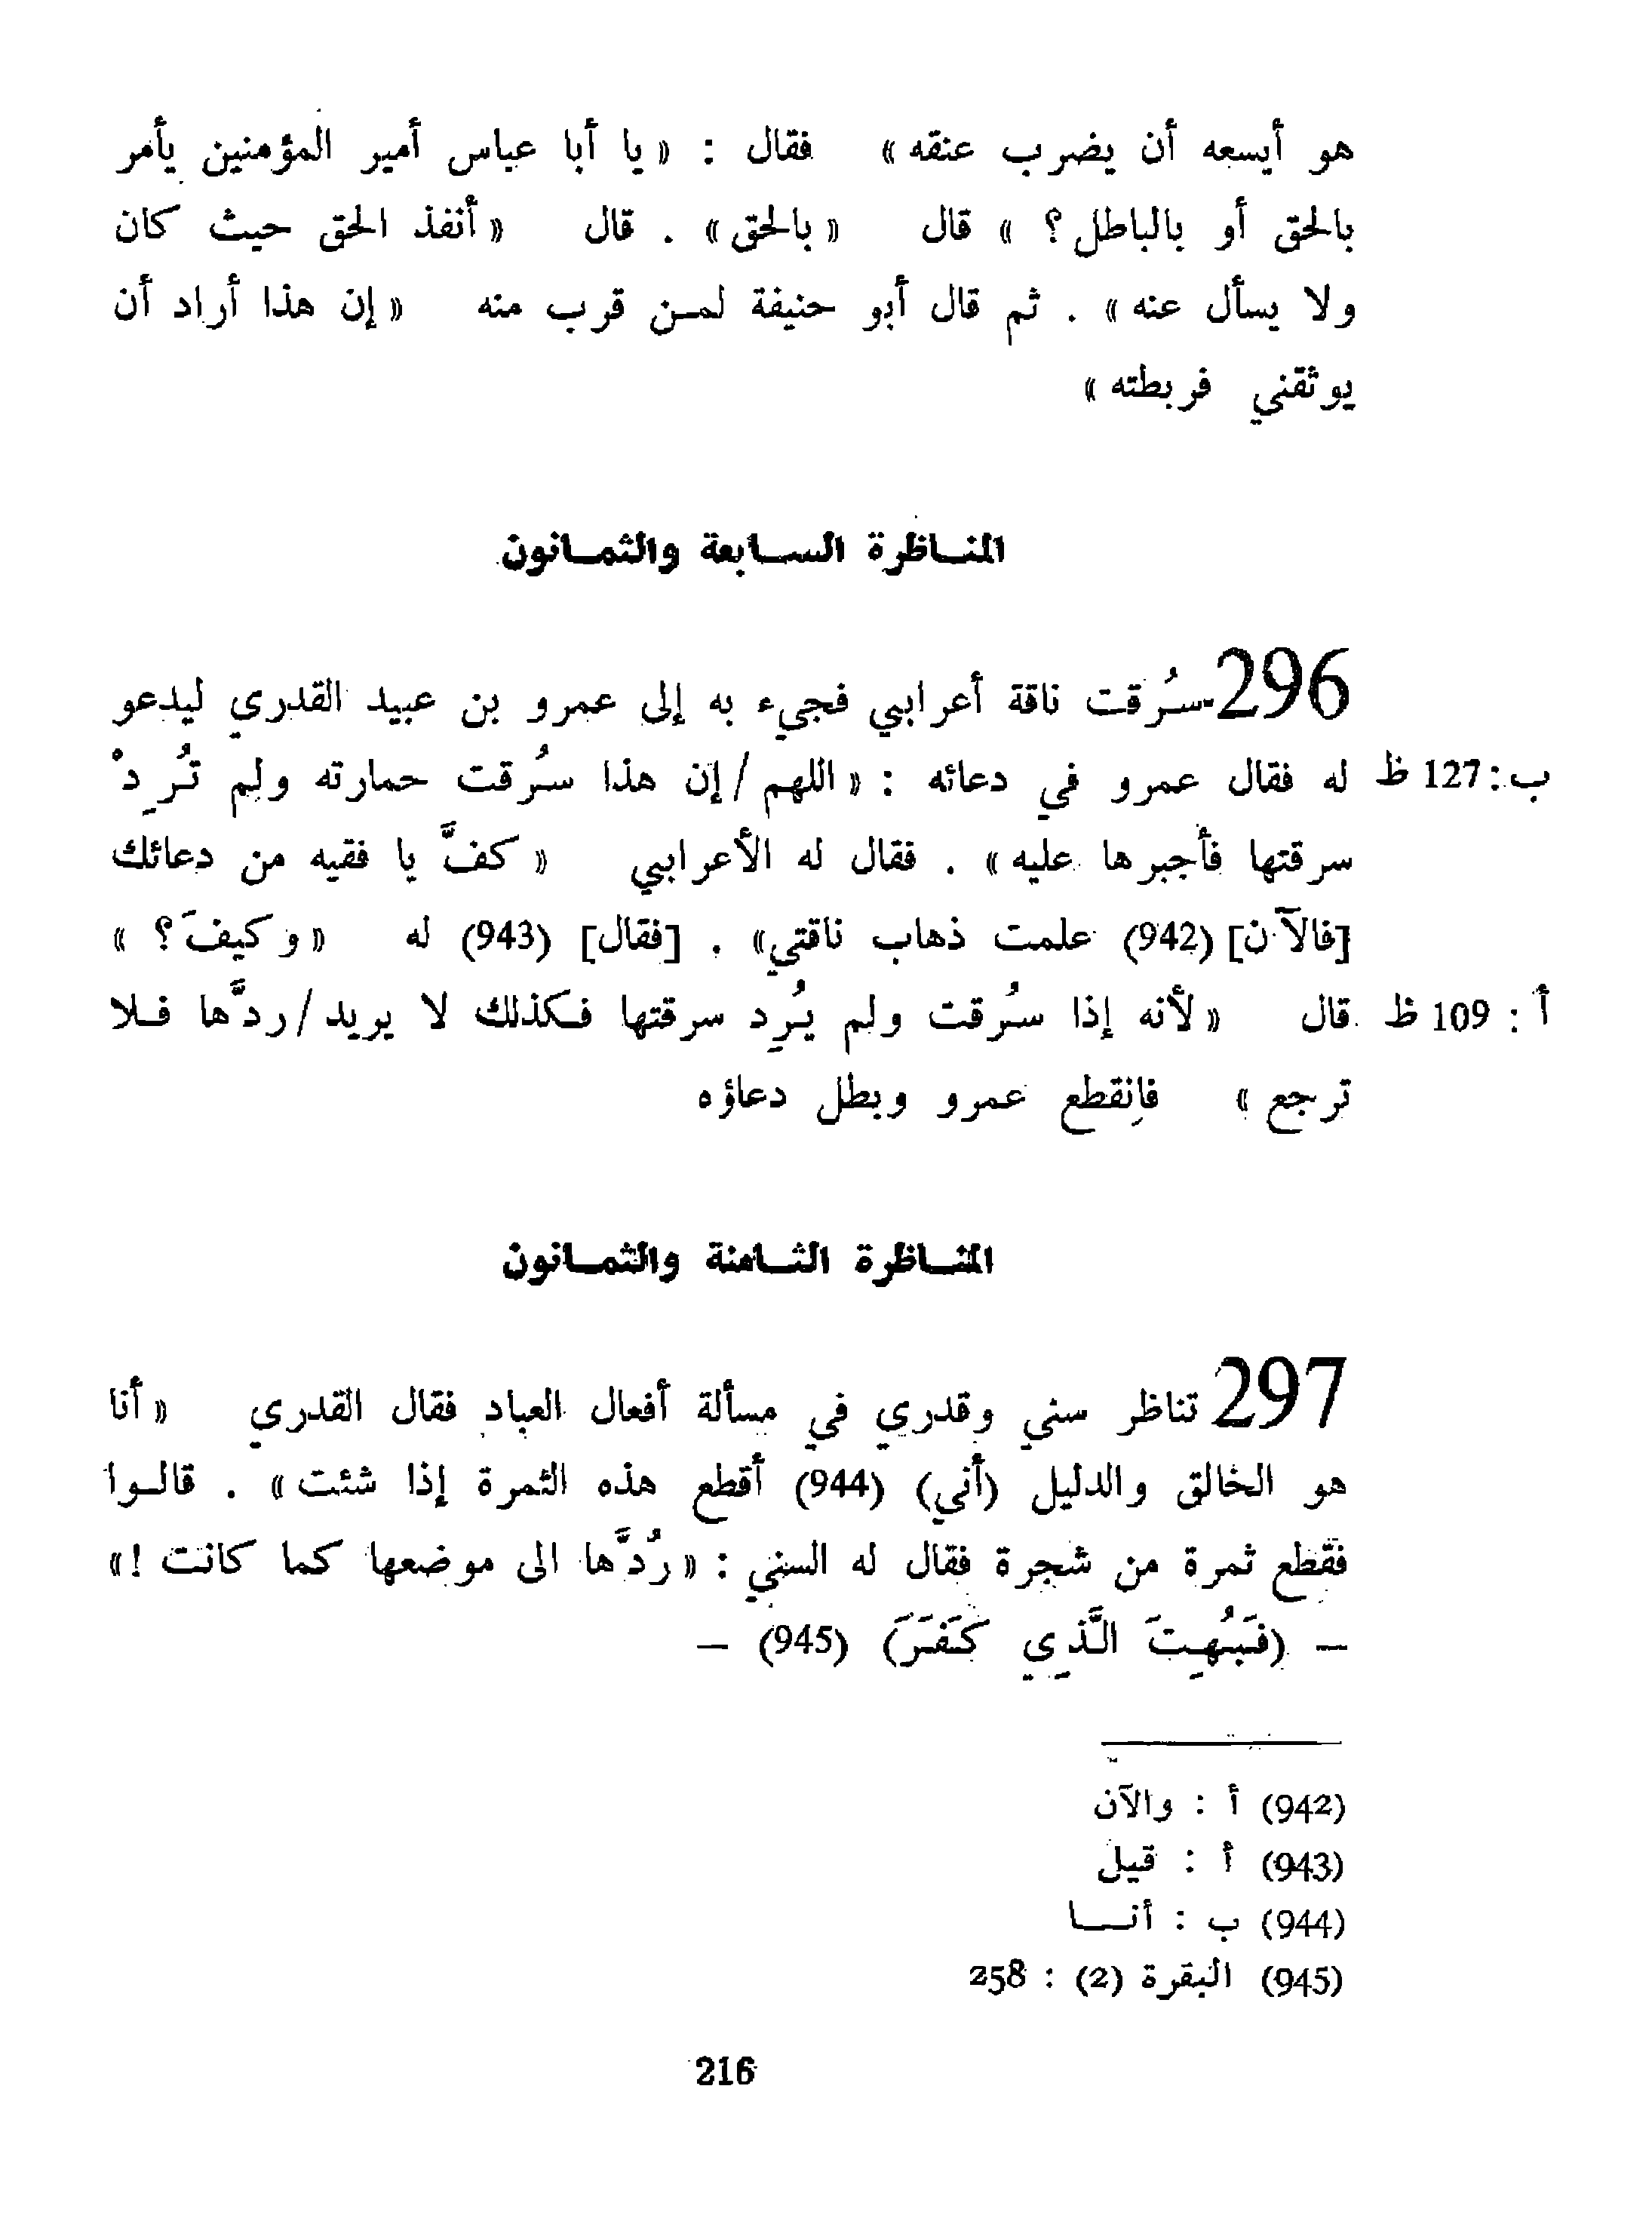 هو أيسعه أن يضرب عنقه » فقال : « يا أبا عباس أمير المؤمنين يأمر
بالحق أو بالباطل ؟ » قال « بالحق» . قال « أنفذ الحق حيث كان
ولا يسأل عنه » . ثم قال أبو حنيفة لمن قرب منه « إن هذا أراد أن
يوثقني فربطته »
المناظرة السابعة والثمانون
296-سُرقت ناقة أعرابي فجيء به إلى عمرو بن عبيد القدري ليدعو
ب: 127 ظ له فقال عمرو في دعائه : « اللهم / إن هذا سُرقت حمارته ولم تُرِدْ
سرقتها فأجبرها عليه » . فقال له الأعرابي « كفَّ يا فقيه من دعائك
[فالآن] (942) علمت ذهاب ناقتي» . [فقال] (943) له « وكيفَ ؟ »
أ : 109 ظ قال « لأنه إذا سُرقت ولم يُرِد سرقتها فكذلك لا يريد / ردَّها فلا
ترجع » فإنقطع عمرو وبطل دعاؤه
المناظرة الثامنة والثمانون
297 تناظر سني وقدري في مسألة أفعال العباد فقال القدري « أنا
هو الخالق والدليل (أني) (944) أقطع هذه الثمرة إذا شئت » . قالوا
فقطع ثمرة من شجرة فقال له السني : « رُدَّها الى موضعها كما كانت ! »
– (فَبُهِتَ الَّذِي كَفَرَ) (945) –
(942) أ : والآن
(943) أ : قيل
(944) ب : أنا
(945) البقرة (2) : 258
216